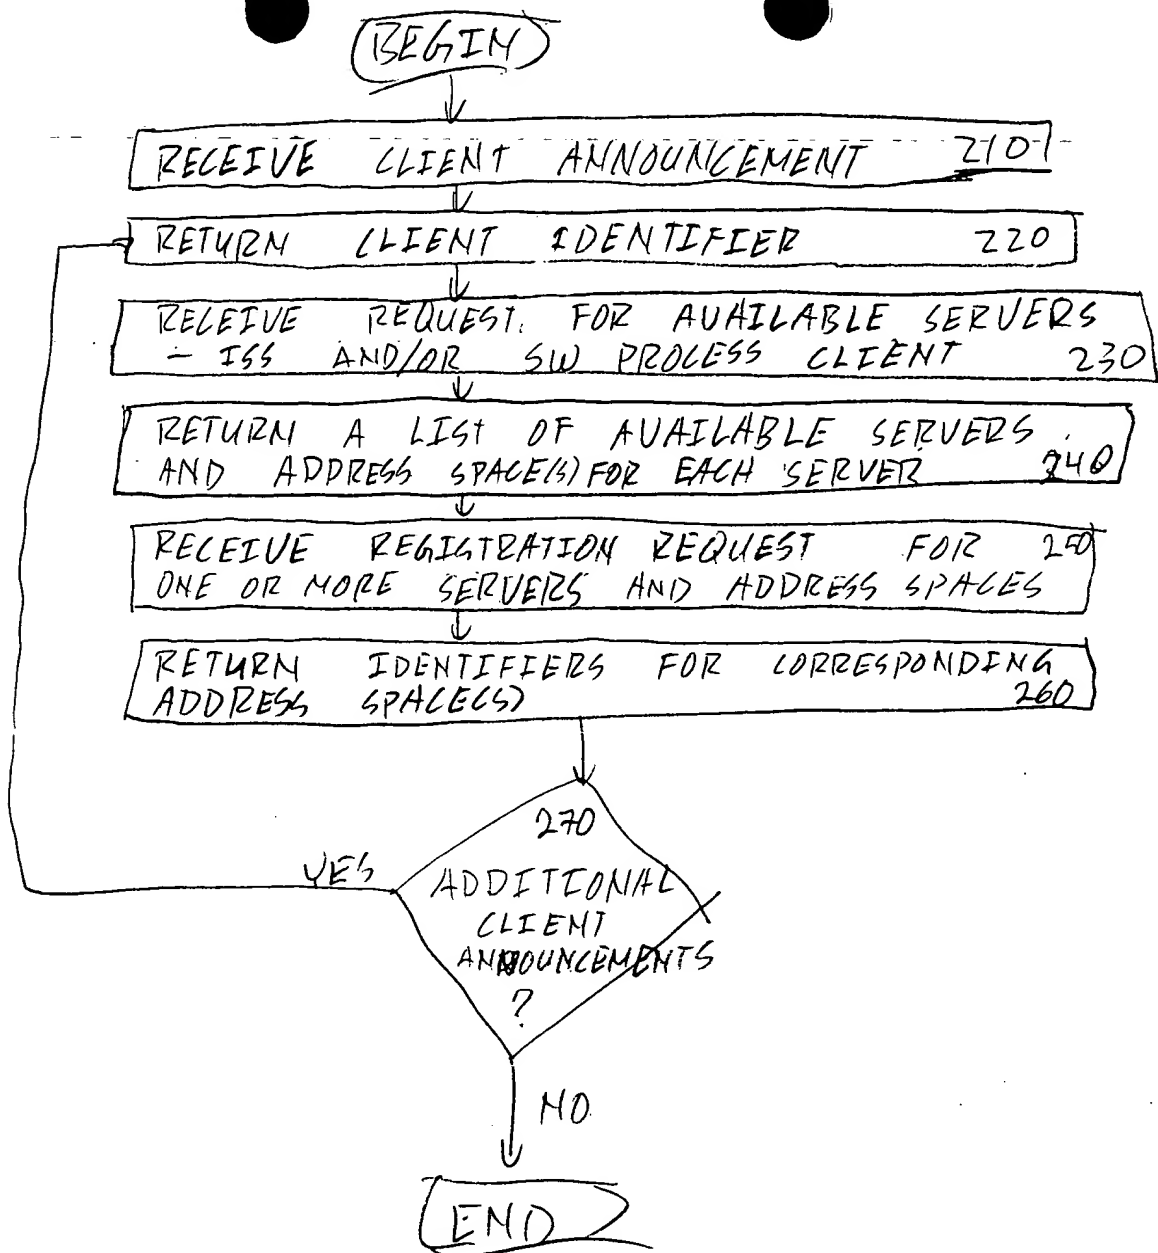 BEGIN
RECEIVE CLIENT ANNOUNCEMENT 210
RETURN CLIENT IDENTIFIER 220
RECEIVE REQUEST FOR AVAILABLE SERVERS
- ISS AND/OR SW PROCESS CLIENT 230
RETURN A LIST OF AVAILABLE SERVERS
AND ADDRESS SPACE(S) FOR EACH SERVER 240
RECEIVE REGISTRATION REQUEST FOR 250
ONE OR MORE SERVERS AND ADDRESS SPACES
RETURN IDENTIFIERS FOR CORRESPONDING
ADDRESS SPACE(S) 260
270
YES
ADDITIONAL
CLIENT
ANNOUNCEMENTS
?
NO
END